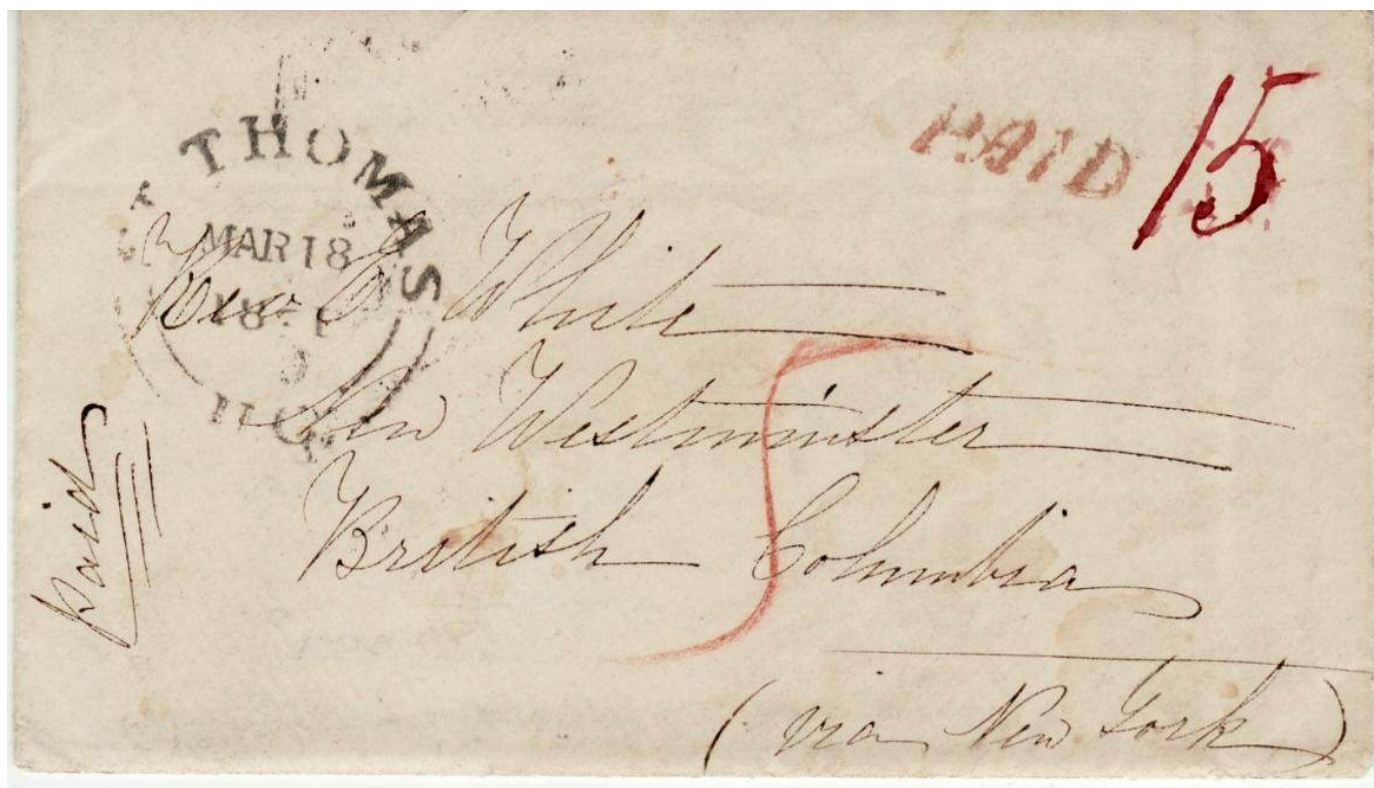 ST THOMAS
MAR 18
U.C.
PAID 15
Rev E White
New Westminster
British Columbia
(via New York)
paid
5